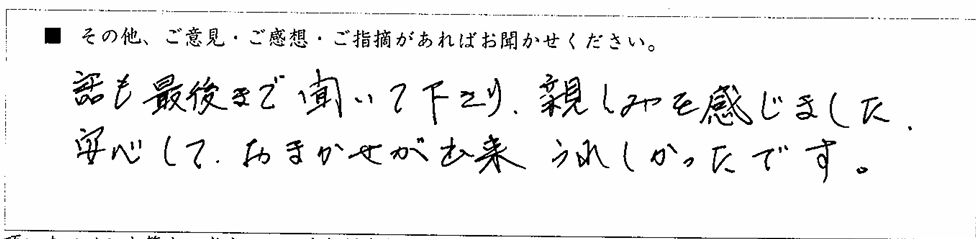 ■ その他、ご意見・ご感想・ご指摘があればお聞かせください。
話も最後まで聞いて下さり、親しみを感じました、
安心して、おまかせが出来 うれしかったです。